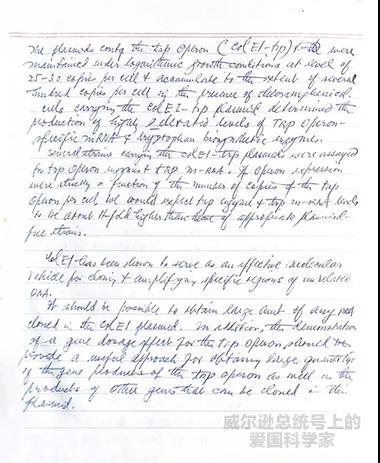 The plasmids contg the trp operon (ColEI-trp) were
maintained under logarithmic growth conditions at level of
25-30 copies per cell & accumulate to the extent of several
hundred copies per cell in the presence of chloramphenicol.
cells carrying the ColEI-trp plasmid determined the
production of highly elevated levels of TRP operon-
specific mRNA & tryptophan biosynthetic enzymes.
Several strains carrying the ColEI-trp plasmids were assayed
for trp operon enzymes & trp m-RNA. If operon expression
were strictly a function of the number of copies of the trp
operon per cell we would expect trp enzyme & trp m-RNA levels
to be about higher than of appropriate plasmid-
free strains.
ColEI-has been shown to serve as an effective molecular
vehicle for cloning & amplifying specific regions of unrelated
DNA.
It should be possible to obtain large amt of any
cloned in the ColEI plasmid. In addition, the demonstration
of a gene dosage effect for the trp operon should
provide a useful approach for obtaining large quantities
of the gene products of the trp operon as well as the
products of other genes that can be cloned in this
plasmid.
威尔逊总统号上的
爱国科学家